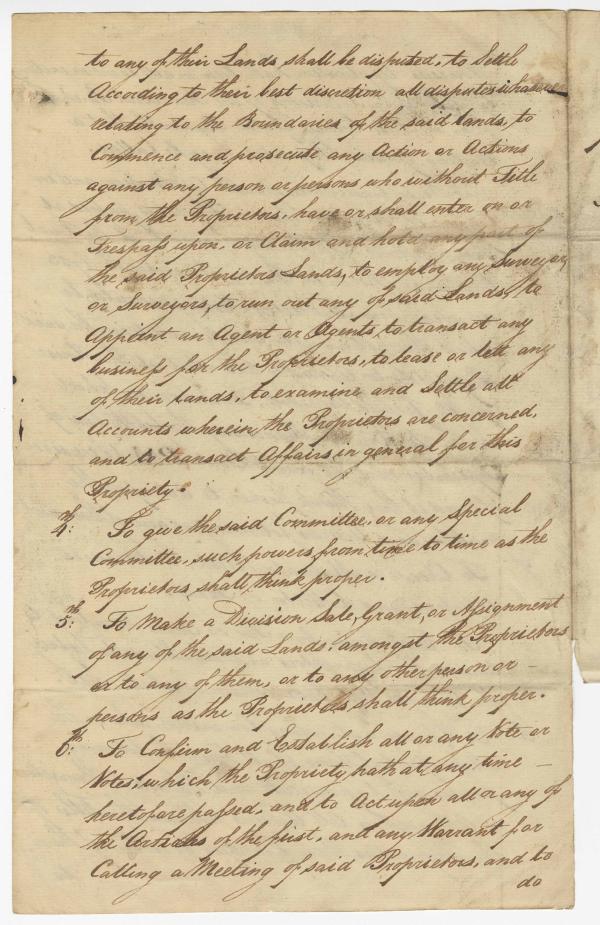 to any of their Lands shall be disputed, to Settle
According to their best discretion all disputes whatsoever
relating to the Boundaries of the said lands, to
Commence and prosecute any Action or Actions
against any person or persons who without Title
from the Proprietors, have or shall enter on or
Trespass upon, or Claim and hold any part of
the said Proprietors Lands, to employ any Surveyor
or Surveyors, to run out any of said Lands, to
Appoint an Agent or Agents, to transact any
business for the Proprietors, to lease or lett any
of their lands, to examine and Settle all
Accounts wherein the Proprietors are concerned,
and to transact Affairs in general for this
Propriety.
4th: To give the said Committee, or any Special
Committee, such powers from time to time as the
Proprietors shall think proper.
5th: To Make a Division Sale, Grant, or Assignment
of any of the said Lands, amongst the Proprietors
or to any of them, or to any other person or
persons as the Proprietors shall think proper.
6th: To Confirm and Establish all or any Vote or
Votes, which the Propriety hath at any time
heretofore passed, and to Act upon all or any of
the Articles of the first, and any Warrant for
Calling a Meeting of said Proprietors, and to
do